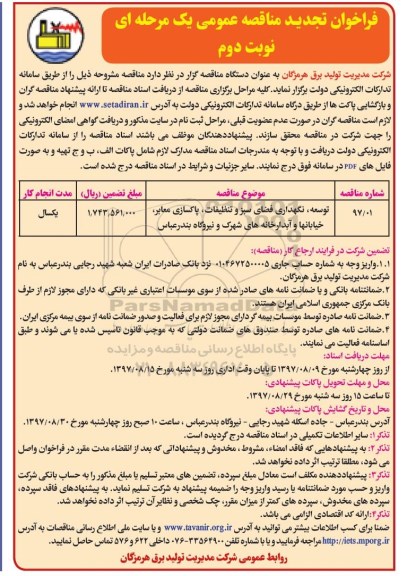 فراخوان تجدید مناقصه عمومی یک مرحله ای
نوبت دوم
شرکت مدیریت تولید برق هرمزگان به عنوان دستگاه مناقصه گزار در نظر دارد مناقصه مشروحه ذیل را از طریق سامانه
تدارکات الکترونیکی دولت برگزار نماید. کلیه مراحل برگزاری مناقصه از دریافت اسناد مناقصه تا ارائه پیشنهاد مناقصه گران
و بازگشایی پاکت ها از طریق درگاه سامانه تدارکات الکترونیکی دولت به آدرس www.setadiran.ir انجام خواهد شد و
لازم است مناقصه گران در صورت عدم عضویت قبلی، مراحل ثبت نام در سایت مذکور و دریافت گواهی امضای الکترونیکی
را جهت شرکت در مناقصه محقق سازند. پیشنهاددهندگان موظف می باشند اسناد مناقصه را از سامانه تدارکات
الکترونیکی دولت دریافت و با توجه به مندرجات اسناد مناقصه مدارک لازم شامل پاکات الف، ب و ج تهیه و به صورت
فایل های PDF در سامانه فوق درج نمایند. سایر جزئیات و شرایط در اسناد مناقصه درج شده است.
شماره مناقصه موضوع مناقصه مبلغ تضمین (ریال) مدت انجام کار
۹۷/۰۱ توسعه، نگهداری فضای سبز و تنظیفات، پاکسازی معابر، خیابانها و آبدارخانه های شهرک و نیروگاه بندرعباس ۱,۷۴۳,۵۶۱,۰۰۰ یکسال
تضمین شرکت در فرایند ارجاع کار (مناقصه):
۱.۱.واریز وجه به شماره حساب جاری ۰۱۰۴۶۷۲۵۰۰۰۰۵ نزد بانک صادرات ایران شعبه شهید رجایی بندرعباس به نام
شرکت مدیریت تولید برق هرمزگان.
۲.ضمانتنامه بانکی و یا ضمانت نامه های صادر شده از سوی موسسات اعتباری غیر بانکی که دارای مجوز لازم از طرف
بانک مرکزی جمهوری اسلامی ایران هستند.
۳.ضمانت نامه صادره توسط موسسات بیمه گر دارای مجوز لازم برای فعالیت و صدور ضمانت نامه از سوی بیمه مرکزی ایران.
۴.ضمانت نامه های صادره توسط صندوق های ضمانت دولتی که به موجب قانون تاسیس شده یا می شوند و طبق
اساسنامه فعالیت می نمایند.
مهلت دریافت اسناد:
از روز چهارشنبه مورخ ۱۳۹۷/۰۸/۰۹ تا پایان وقت اداری روز سه شنبه مورخ ۱۳۹۷/۰۸/۱۵
محل و مهلت تحویل پاکات پیشنهادی:
تا ساعت ۱۵ روز سه شنبه مورخ ۱۳۹۷/۰۸/۲۹
محل و تاریخ گشایش پاکات پیشنهادی:
آدرس بندرعباس - جاده اسکله شهید رجایی - نیروگاه بندرعباس ، ساعت ۱۰ صبح روز چهارشنبه مورخ ۱۳۹۷/۰۸/۳۰.
تذکر۱: سایر اطلاعات تکمیلی در اسناد مناقصه درج گردیده است.
تذکر۲: به پیشنهادهایی که فاقد امضاء، مشروط ، مخدوش و پیشنهاداتی که بعد از انقضاء مدت مقرر در فراخوان واصل
می شود، مطلقا ترتیب اثر داده نخواهد شد.
تذکر۳: پیشنهاددهنده مکلف است معادل مبلغ سپرده، تضمین های معتبر تسلیم یا مبلغ مذکور را به حساب بانکی شرکت
واریز و حسب مورد ضمانتنامه یا رسید واریز وجه را ضمیمه پیشنهاد به شرکت تسلیم نماید. به پیشنهادهای فاقد سپرده،
سپرده های مخدوش، سپرده های کمتر از میزان مقرر، چک شخصی و نظایر آن ترتیب اثر داده نخواهد شد.
تذکر۴: ارائه کد اقتصادی الزامی می باشد.
ضمنا برای کسب اطلاعات بیشتر می توانید به آدرس www.tavanir.org.ir و یا سایت ملی اطلاع رسانی مناقصات به آدرس
http://iets.mporg.ir مراجعه فرمایید و یا با شماره تلفن ۳۳۵۶۴۹۰۰-۰۷۶ داخلی ۶۲۲ و ۵۷۶ تماس حاصل نمایید.
روابط عمومی شرکت مدیریت تولید برق هرمزگان